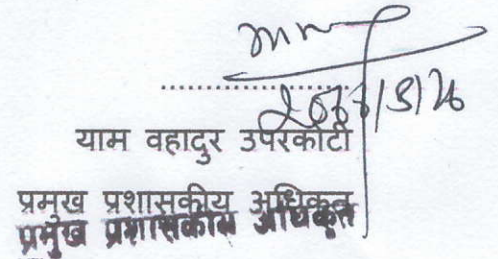 ....................
याम वहादुर उपरकोटी
प्रमुख प्रशासकीय अधिकृत
प्रमुख प्रशासकीय अधिकृत